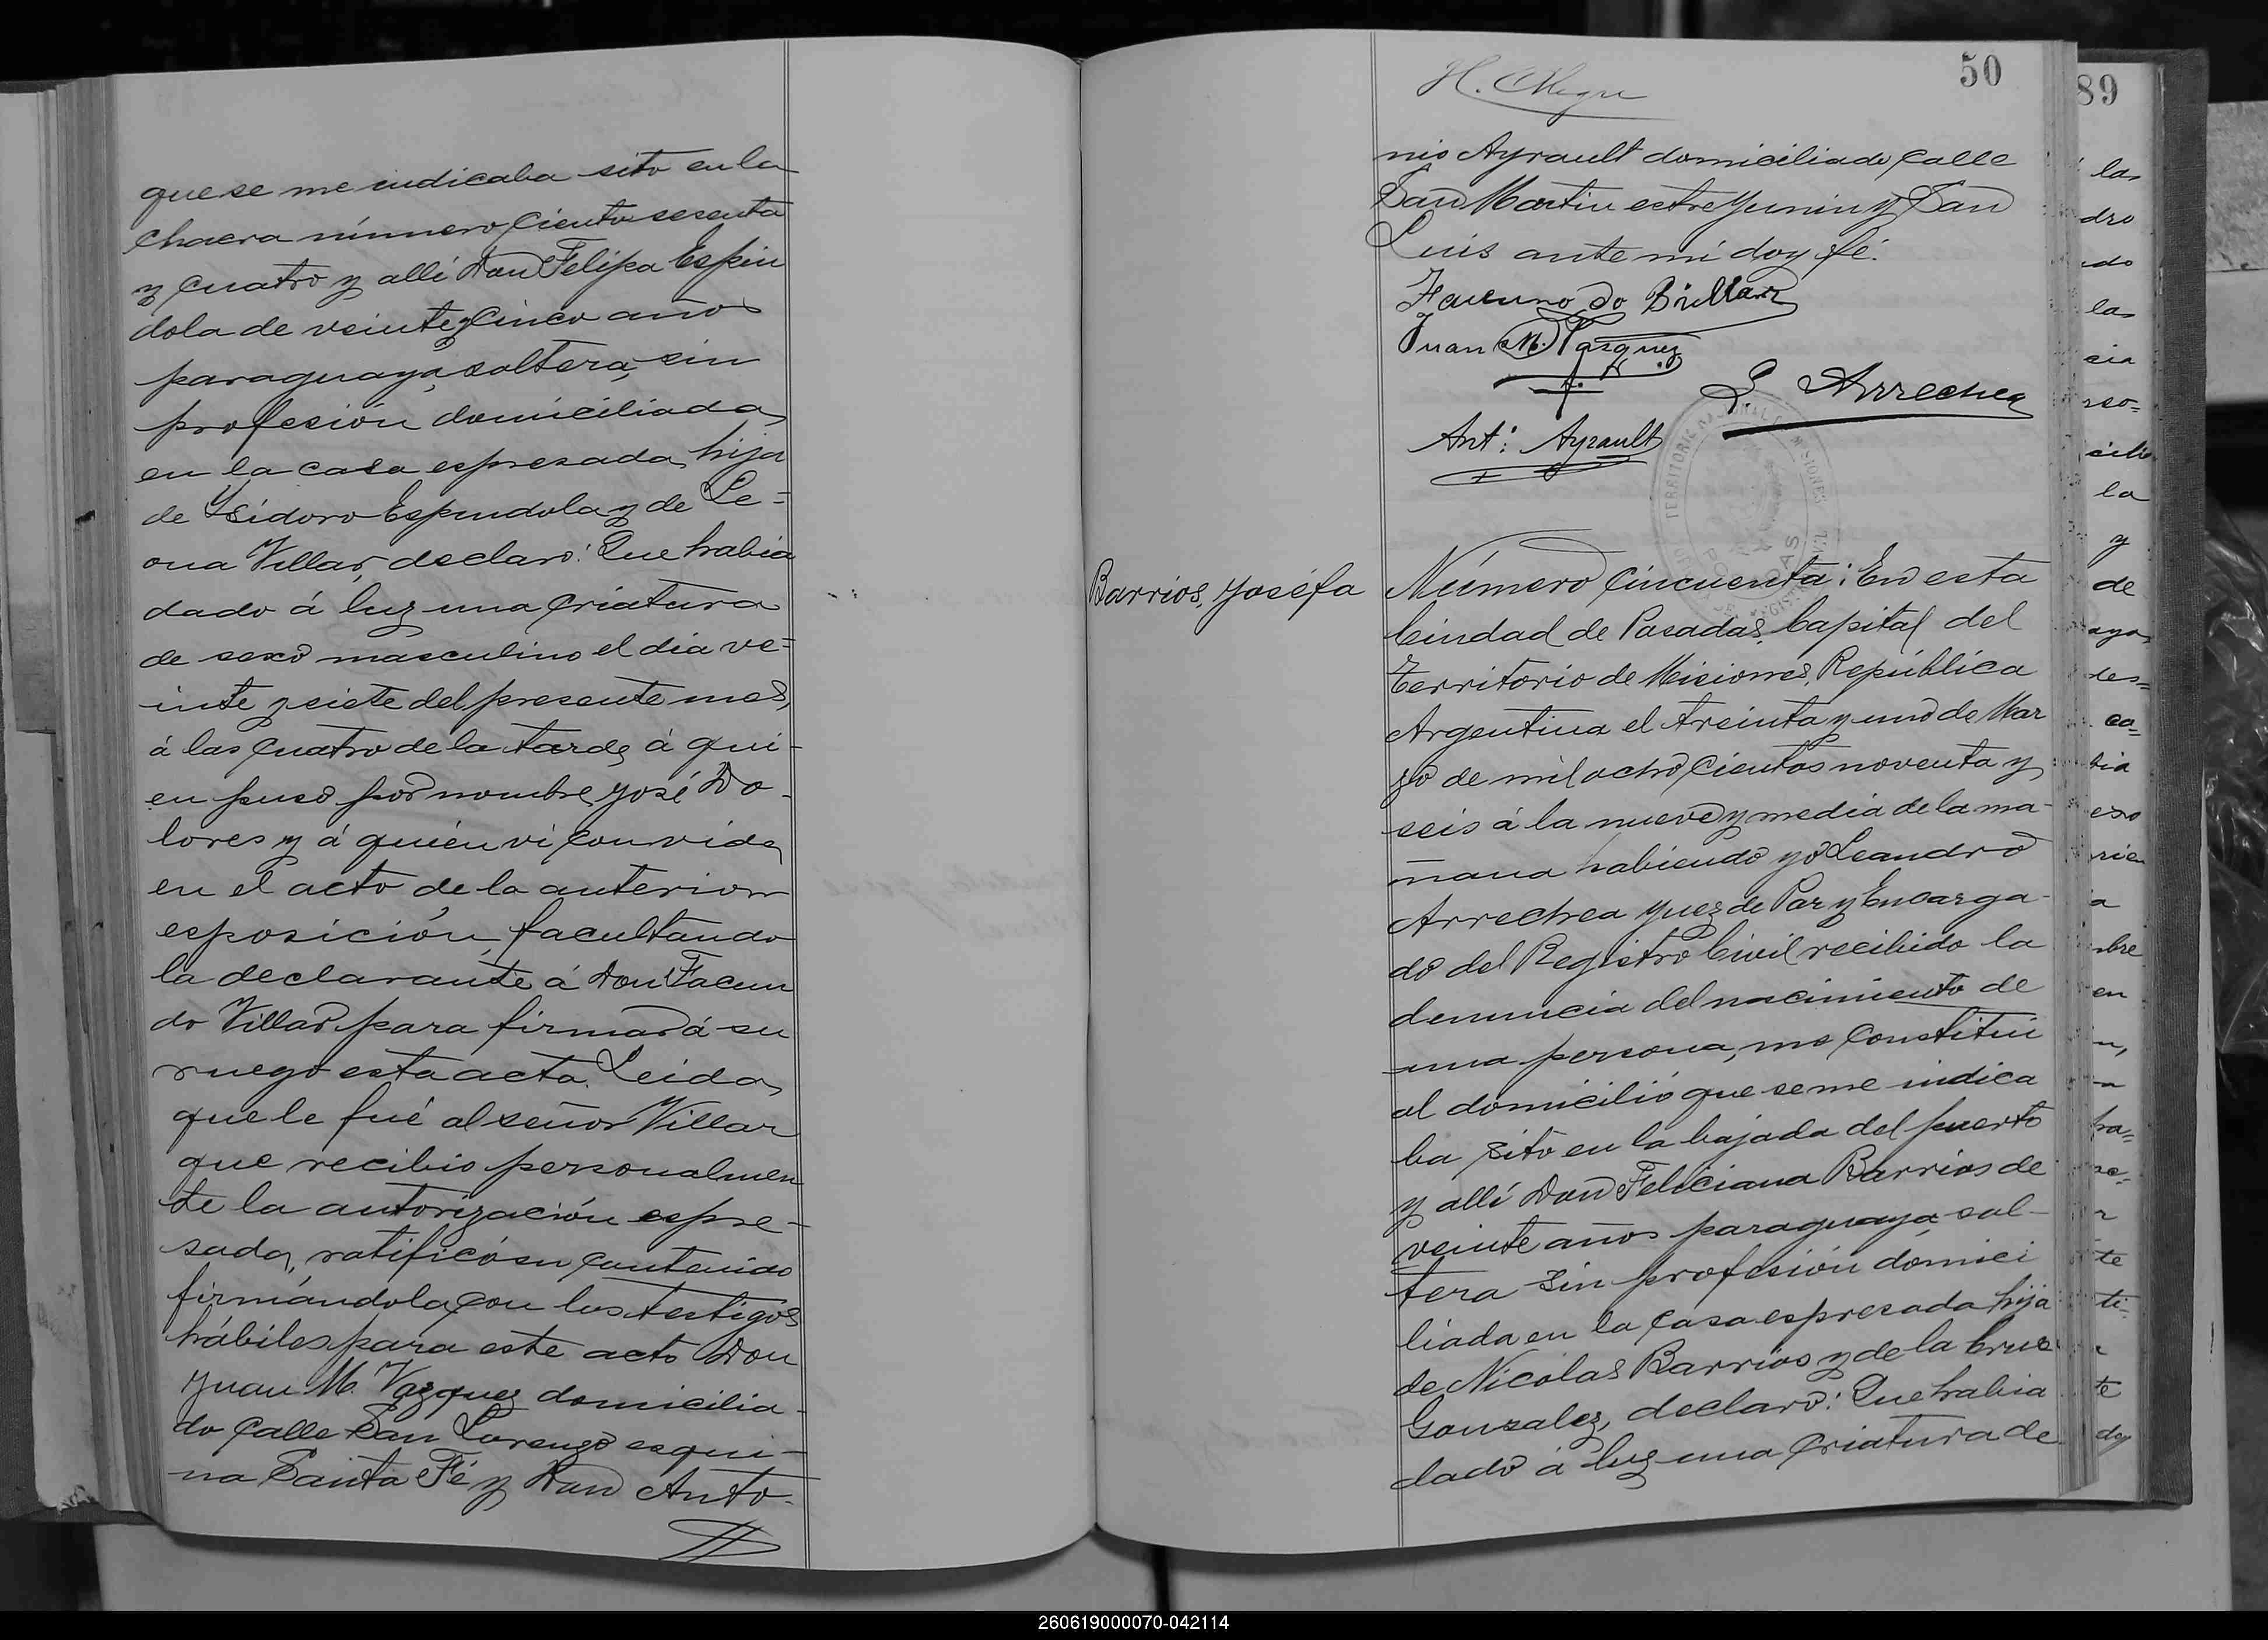 que se me indicaba sito en la
chacra número ciento sesenta
y cuatro y alli Don Felipa Espin
dola de veinte y cinco años
paraguaya, soltera, sin
profesión domiciliada
en la casa espresada, hija
de Ysidoro Espindola y de Le=
ona Villar, declaró: Que habia
dado á luz una criatura
de sexo masculino el dia ve=
inte y siete del presente mes,
á las cuatro de la tarde, á qui-
en puso por nombre José Do-
lores y á quién vi con vida
en el acto de la anterior
esposición, facultando
la declarante á Don Facun
do Villar para firmar á su
ruego esta acta. Leida
que le fué al señor Villar
que recibio personalmen
te la autorización espre-
sada, ratificó su contenido
firmándola con los testigos
hábiles para este acto Don
Juan M. Vazquez domicilia-
do calle San Lorenzo esqui-
na Santa Fé y Don Anto-
50
nio Ayrault domiciliado calle
San Martin entre Junin y San
Luis ante mi doy fé.
Juan M. Vasquez
L. Arrechea
Ant: Ayrault
TERRITORIO NACIONAL DE MISIONES
POSADAS
Barrios, Joséfa
Número cincuenta: En esta
Ciudad de Posadas, Capital del
Territorio de Misiones, República
Argentina el treinta y uno de Mar
zo de mil ochocientos noventa y
seis á la nueve y media de la ma-
ñana habiendo yo Leandro
Arrechea Juez de Paz y Encarga-
do del Registro Civil recibido la
denuncia del nacimiento de
una persona, me constitui
al domicilió que se me indica
ba sito en la bajada del puerto
y allí Don Feliciana Barrios de
veinte años paraguaya, sol-
tera sin profesión domici
liada en la casa espresada hija
de Nicolas Barrios y de la Cruz
Gonzalez, declaró: Que habia
dado á luz una criatura de
89
la
dro
do
la
cia
la
y
de
ca=
bia
a
en
te
te
doy
260619000070-042114